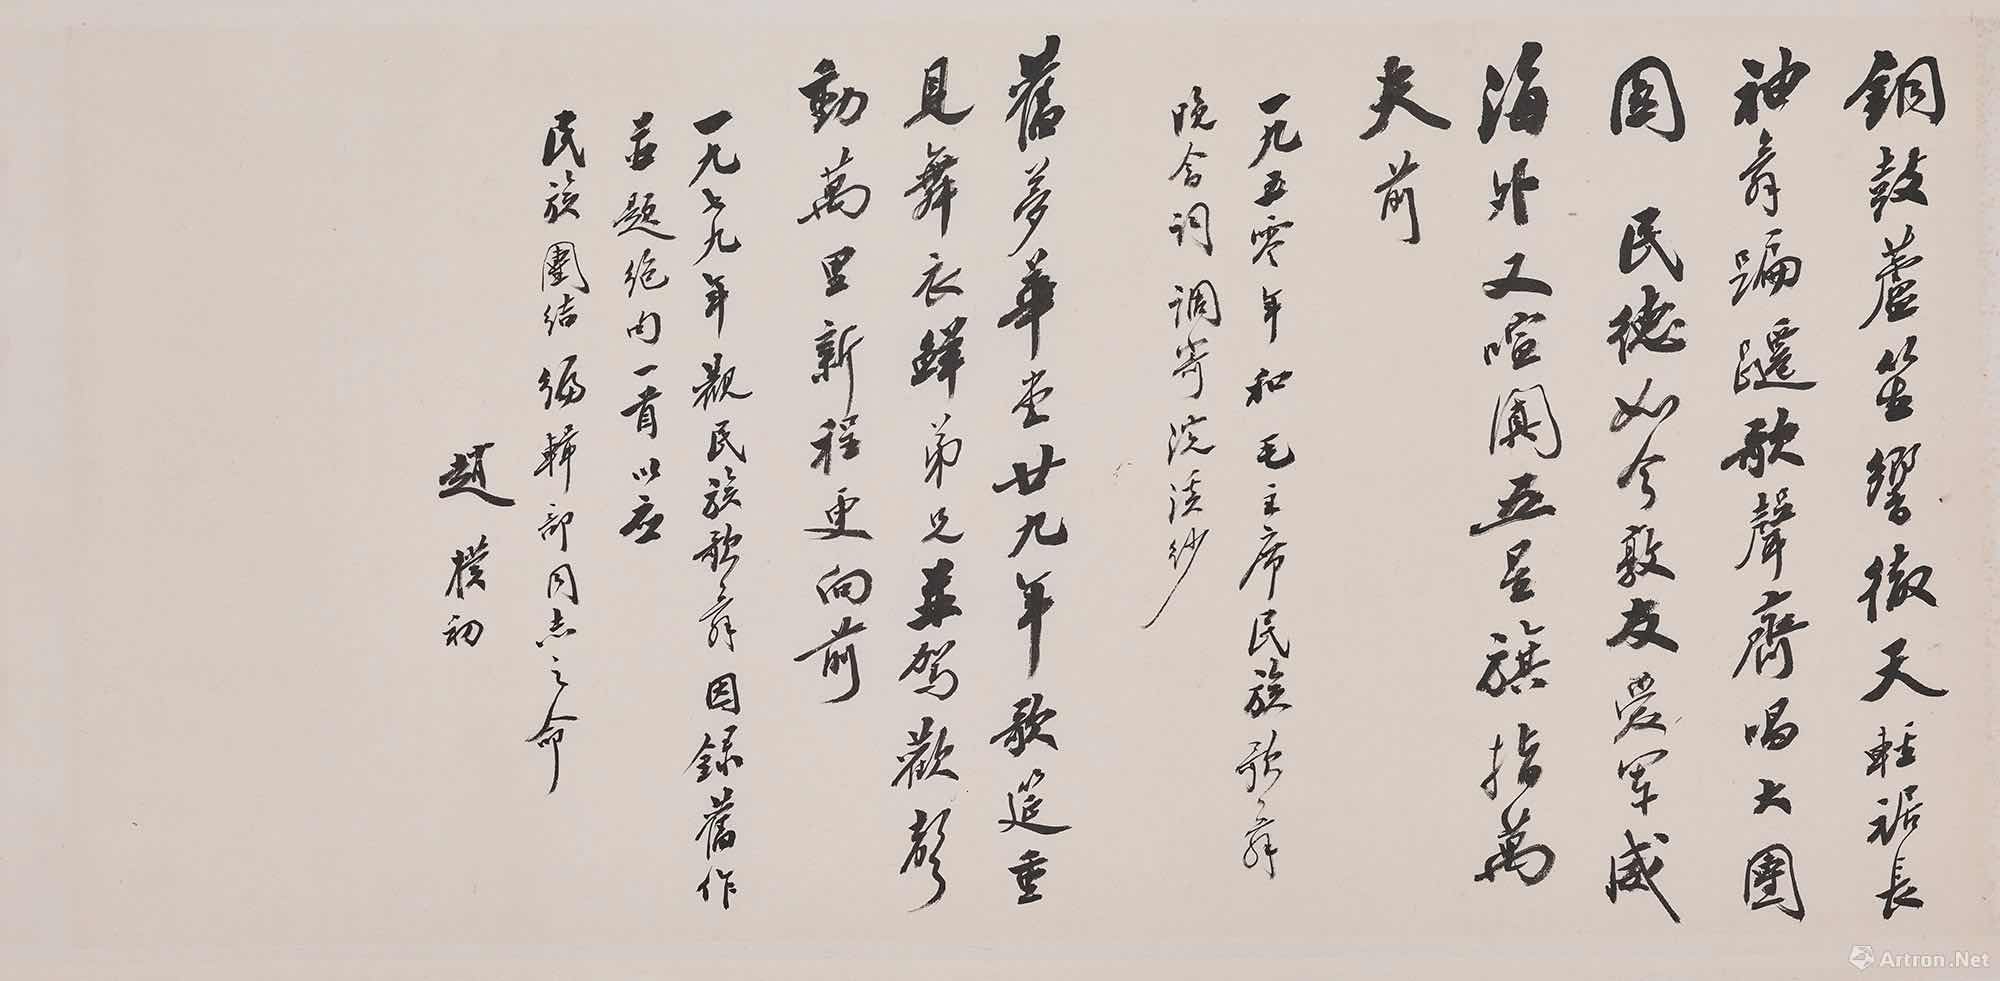 銅鼓蘆笙響徹天輕裾長
袖舞蹁躚歌聲齊唱大團
圓　民德如今敦友愛軍威
海外又喧闐五星旗指萬
夫前
一九五零年和毛主席民族歌舞
晚会词调寄浣溪纱
舊夢華堂廿九年歌筵重
見舞衣鲜弟兄並駕歡聲
動萬里新程更向前
一九七九年觀民族歌舞因録舊作
並题绝句一首以应
民族團结编辑部同志之命
趙樸初
Artron.Net